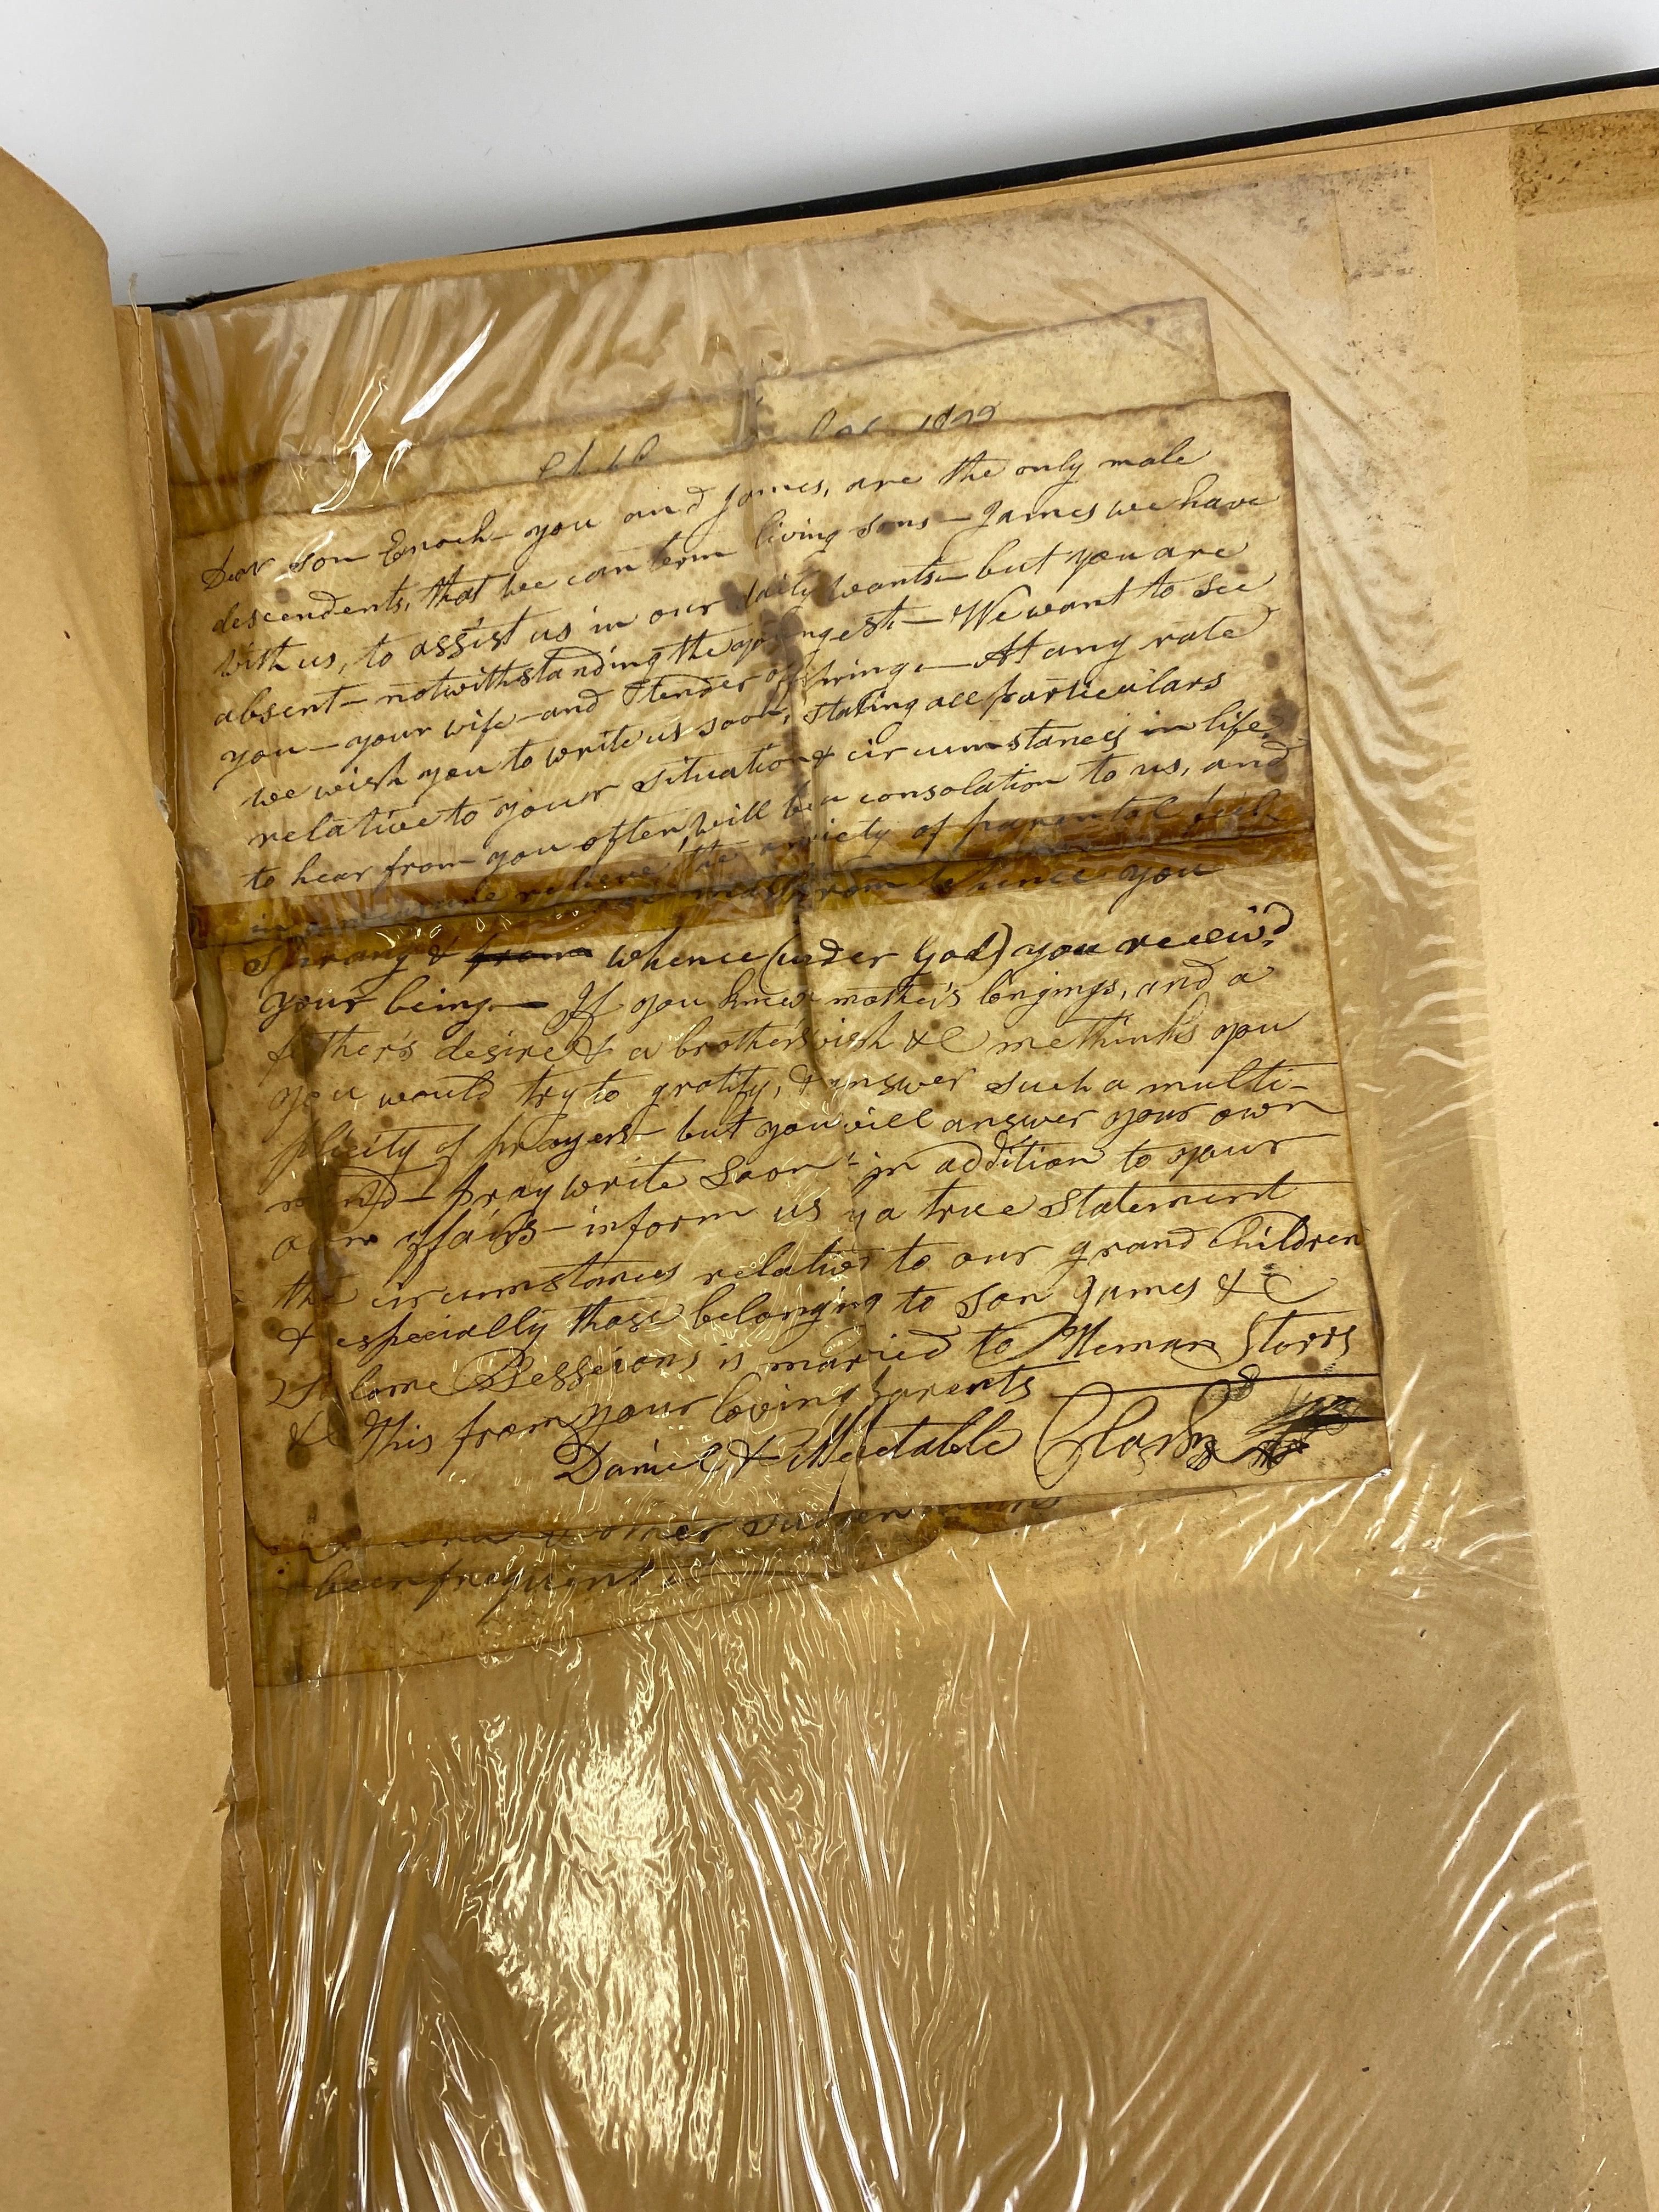 Dear Son Enoch – you and James, are the only male
descendents, that we can term living sons – James we have
with us, to assist us in our daily wants – but you are
absent – notwithstanding the youngest – We want to see
you – your wife – and tender offspring. – At any rate
we wish you to write us soon, stating all particulars
relative to your situation & circumstances in life.
to hear from you often, will be a consolation to us, and
in a measure relieve the anxiety of parental
from whence you
Sprang & from whence (under God) you receiv'd
your being. – If you knew mother's longings, and a
father's desire & a brother's wish &c methinks you
you would try to gratify, & answer such a multi-
plicity of prayers – but you will answer your own
mind – pray write soon – in addition to your
own affairs – inform us by a true Statement
the circumstances relative to our grand Children
& especially those belonging to son James &c
Sessions is married to Heman Storrs
&c This from your loving parents
Daniel & Mehetable Clark
& other sudden
been frequent